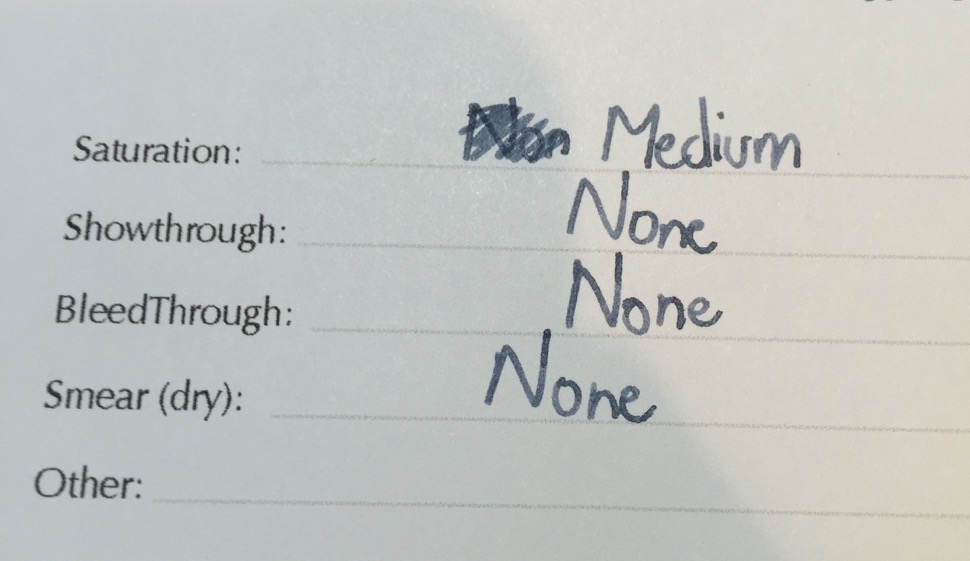 Saturation: Medium
Showthrough: None
BleedThrough: None
Smear (dry): None
Other: